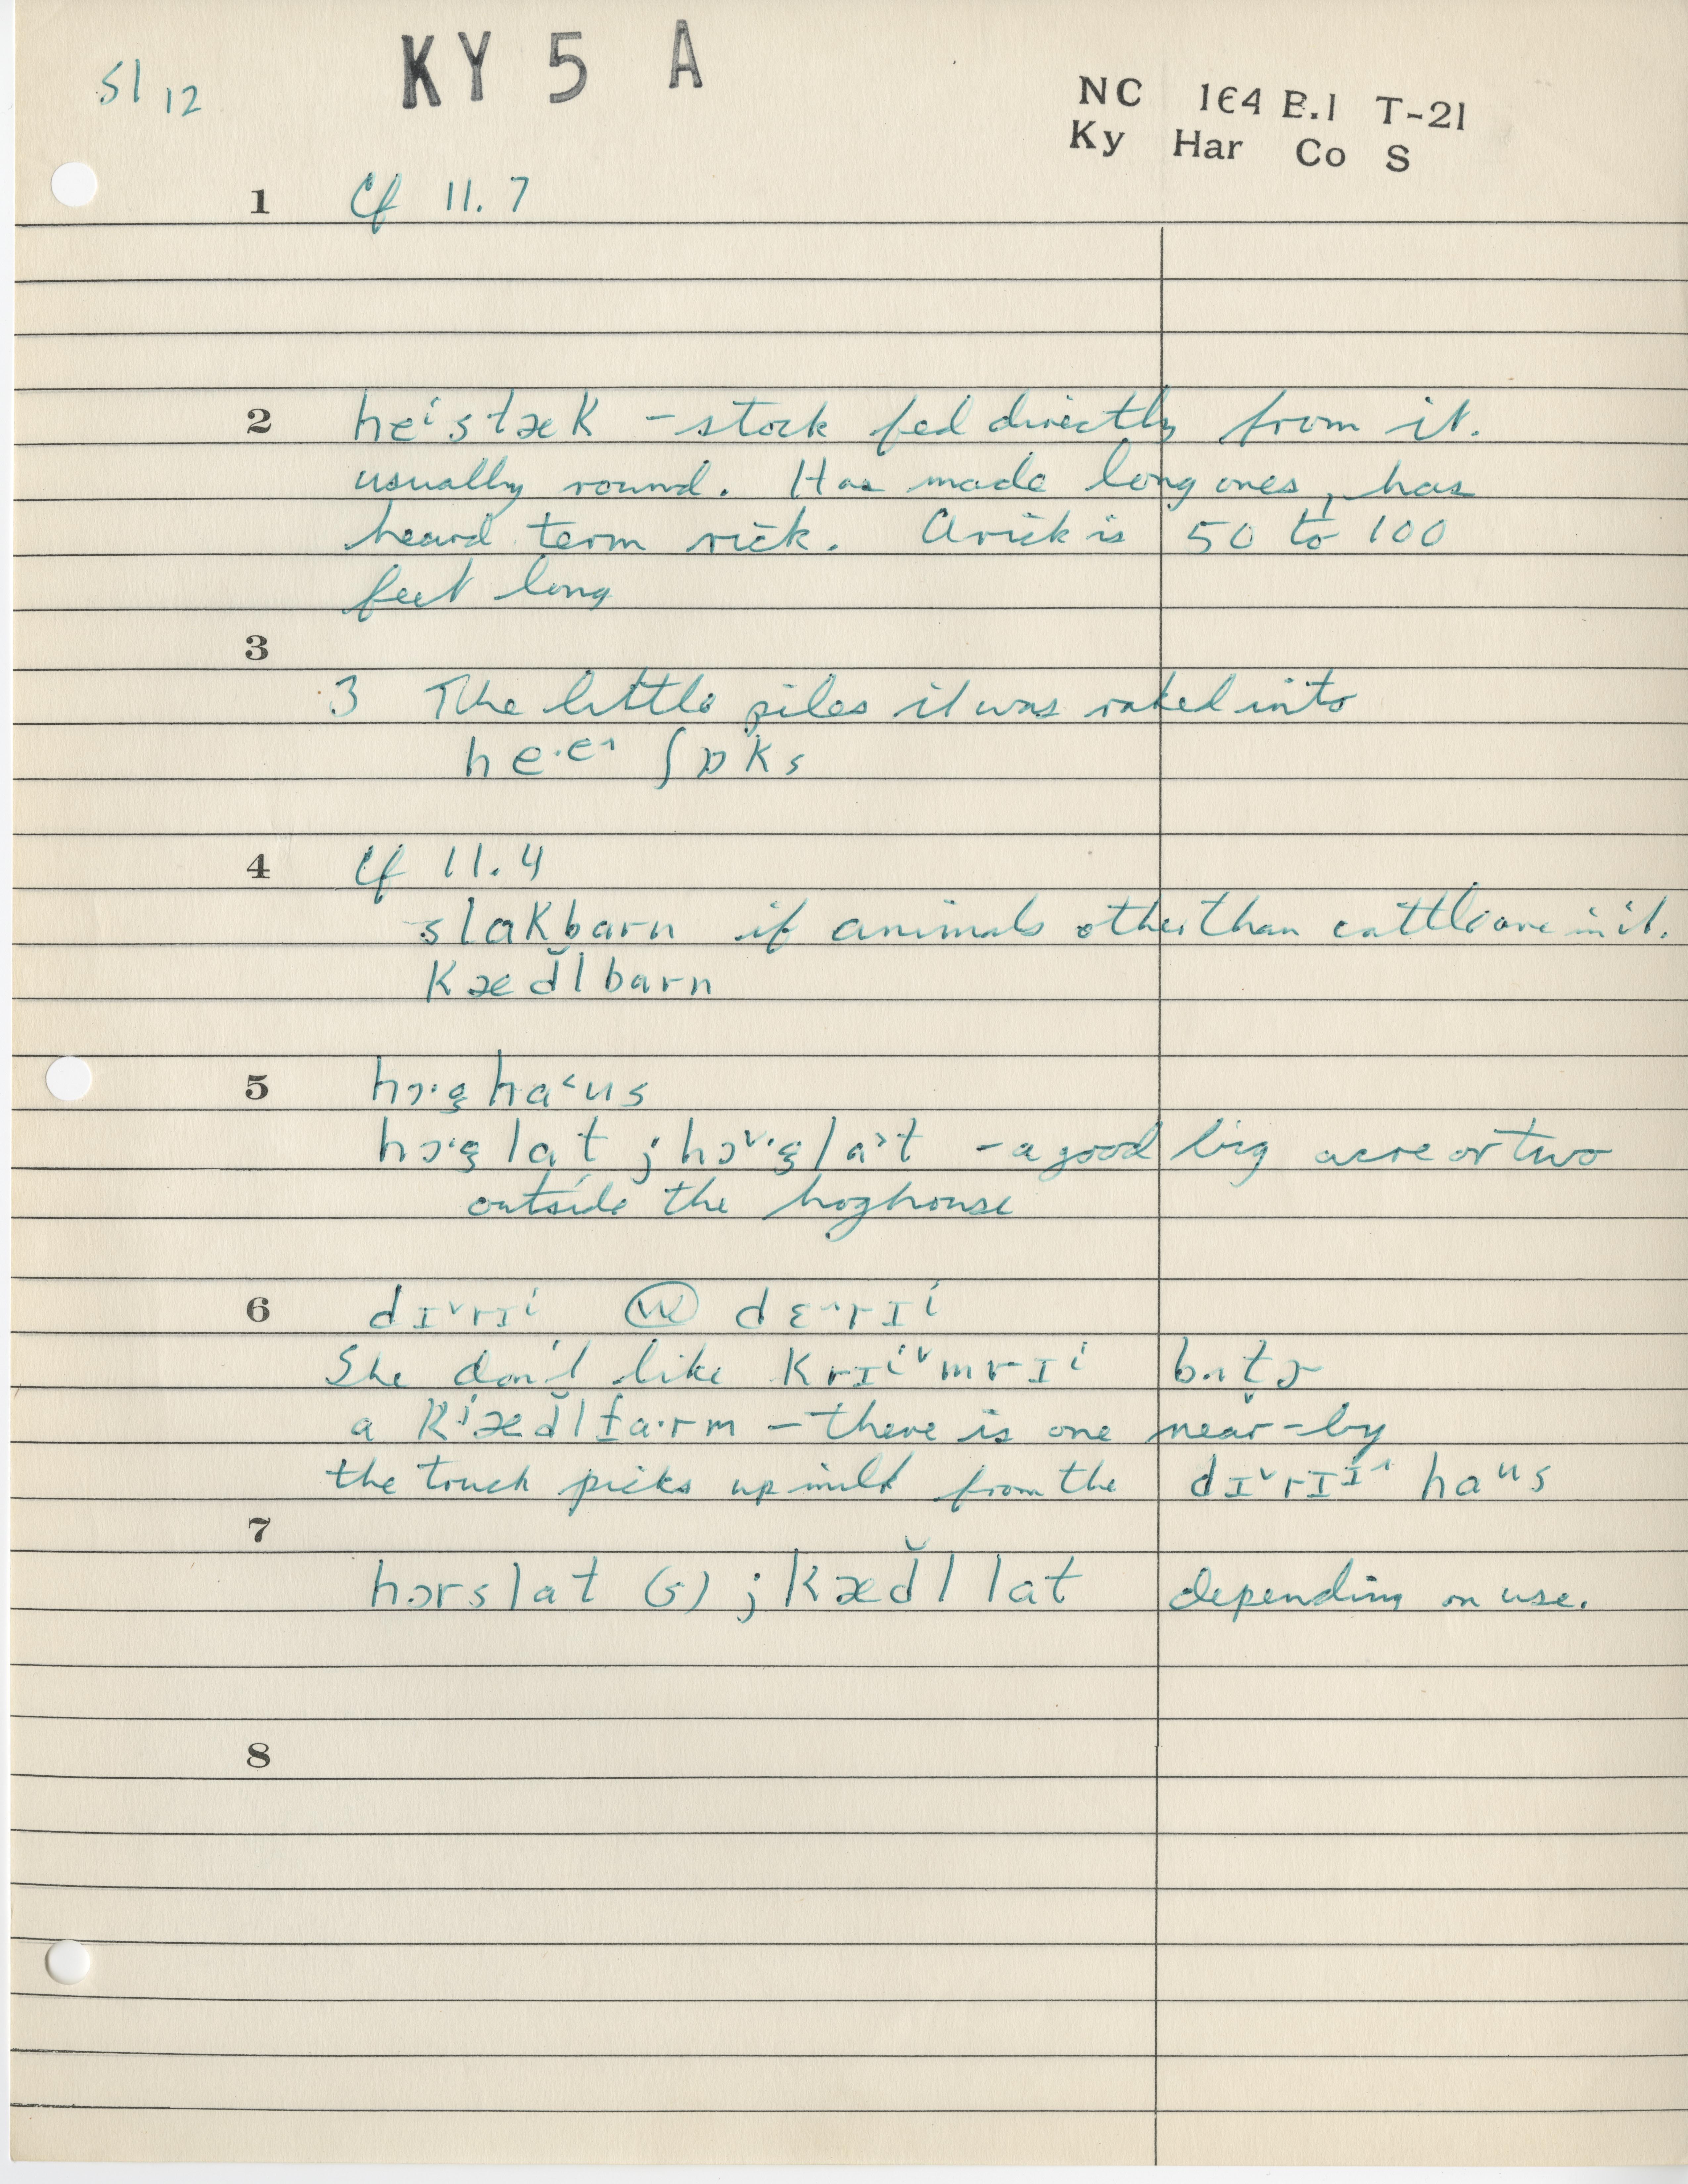 51 12
KY 5 A
NC 164 B.1 T-21
Ky Har Co S
1 Cf 11.7
2 heⁱstæk – stock fed directly from it.
usually round. Has made long ones, has
heard term rick. A rick is 50 to 100
feet long
3
3 The little piles it was raked into
he·e˄ ʃɒks
4 Cf 11.4
stakbarn if animals other than cattle are in it.
kæd̆lbarn
5 hɔ·g̨ ha˂us
hɔ·g̨lat ; hɔ˅·g̨la˃t – a good big acre or two
outside the hoghouse
6 dɪ˅rɪⁱ Ⓦ dɛ˄rɪⁱ
She don't like krɪⁱ˅mrɪⁱ
a kʲæd̆lfa·rm – there is one near-by
the truck picks up milk from the dɪ˅rɪɪ˄ haᵘs
7
hɔrslat (s) ; kæd̆llat depending on use.
8